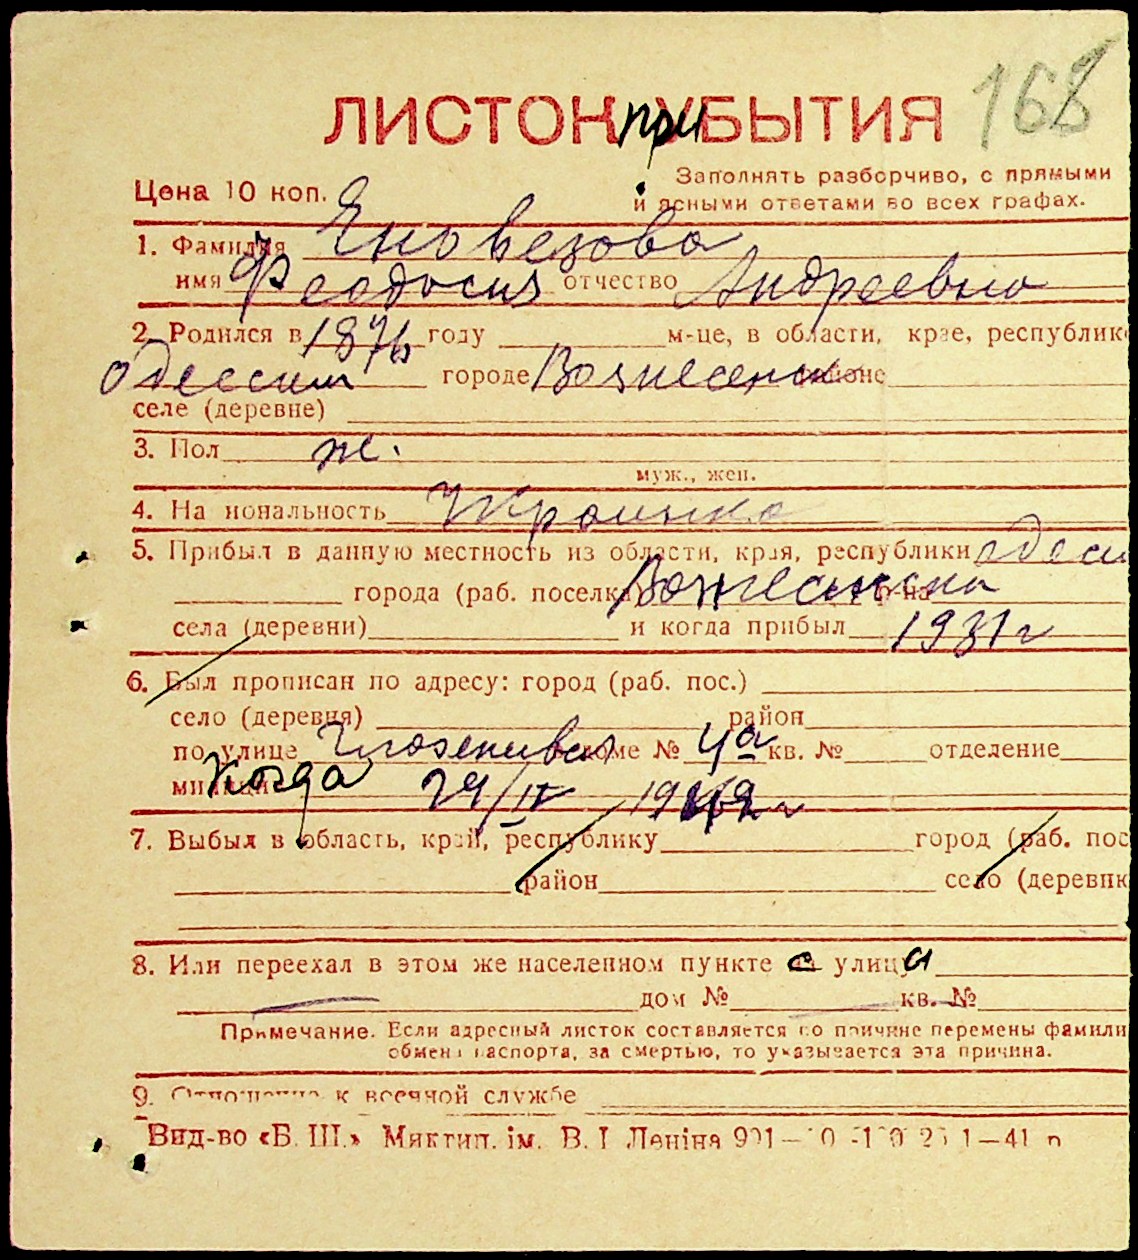 168
ЛИСТОК при УБЫТИЯ
Цена 10 коп. Заполнять разборчиво, с прямыми
и ясными ответами во всех графах.
1. Фамилия Еновезова
имя Феодосия отчество Андреевна
2. Родился в 1876 году м-це, в области, крае, республик
одесский городе Вознесенск районе
селе (деревне)
3. Пол ж.
муж., жен.
4. На иональность Украинка
5. Прибыл в данную местность из области, края, республики одесс
города (раб. поселка) Вознесенска р-на
села (деревни) и когда прибыл 1931 г
6. Был прописан по адресу: город (раб. пос.)
село (деревня) район
по улице доме № 4а кв. № отделение
милиции Когда 29/IV 1942 г
7. Выбыл в область, край, республику город (раб. пос
район село (деревня
8. Или переехал в этом же населенном пункте с улицы
дом № кв. №
Примечание. Если адресный листок составляется по причине перемены фамили
обмена паспорта, за смертью, то указывается эта причина.
9. Отношение к военной службе
Вид-во «Б. Ш.» Миктип. ім. В. І Леніна